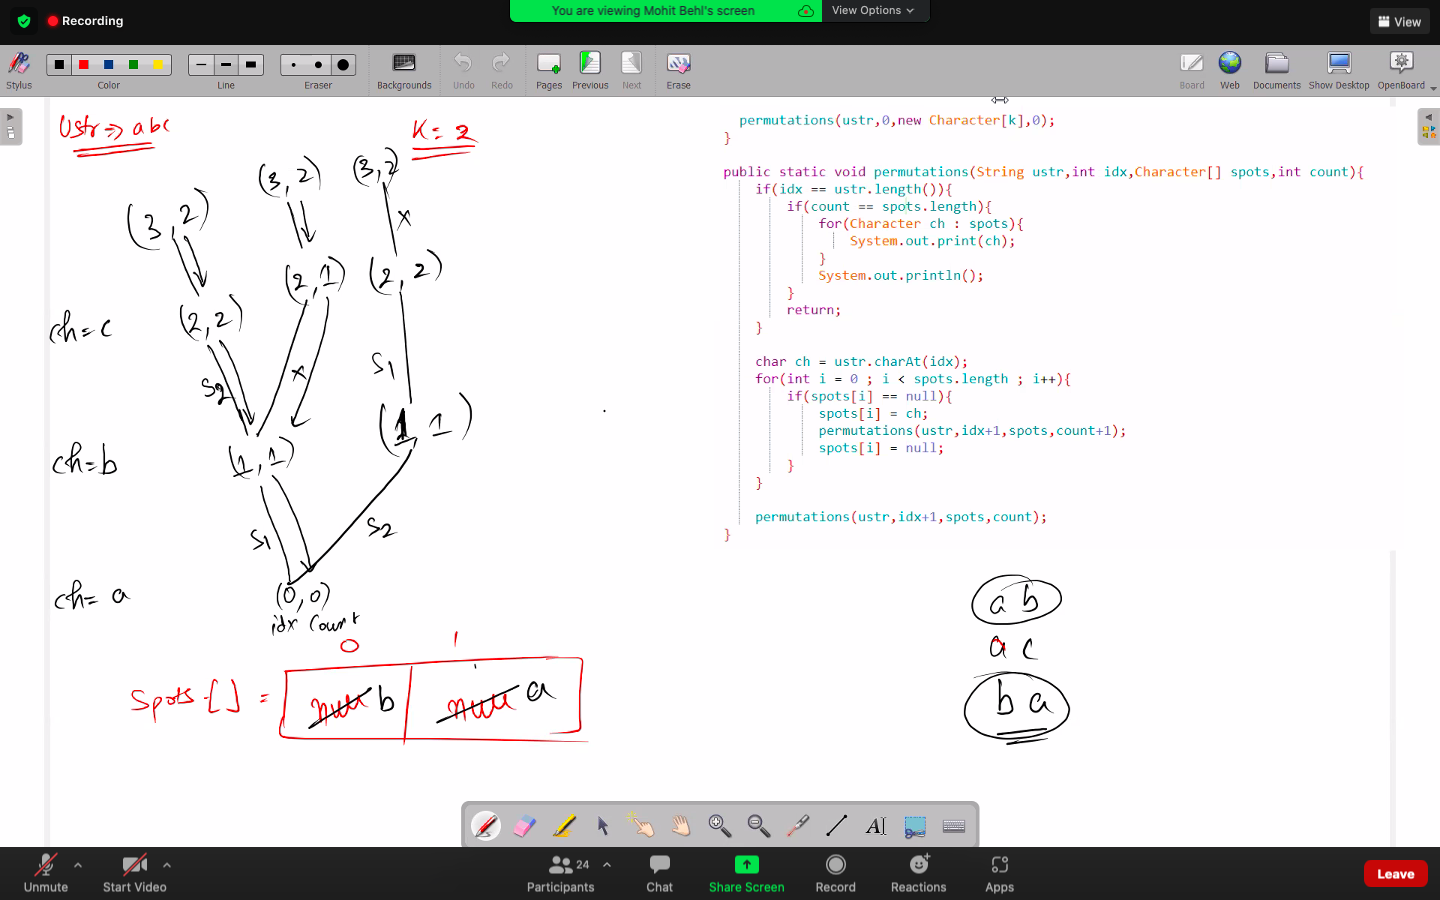 Recording
You are viewing Mohit Behl's screen
View Options
View
Stylus
Color
Line
Eraser
Backgrounds
Undo
Redo
Pages
Previous
Next
Erase
Board
Web
Documents
Show Desktop
OpenBoard
Ustr => abc
K = 2
(3, 2)
(3, 2)
(3, 2)
x
(2, 2)
(2, 1)
(2, 2)
ch = c
S2
x
S1
(1, 1)
(1, 1)
ch = b
S1
S2
ch = a
(0, 0)
idx count
0
1
Spots [] =
null b
null a
permutations(ustr,0,new Character[k],0);
}
public static void permutations(String ustr,int idx,Character[] spots,int count){
if(idx == ustr.length()){
if(count == spots.length){
for(Character ch : spots){
System.out.print(ch);
}
System.out.println();
}
return;
}
char ch = ustr.charAt(idx);
for(int i = 0 ; i < spots.length ; i++){
if(spots[i] == null){
spots[i] = ch;
permutations(ustr,idx+1,spots,count+1);
spots[i] = null;
}
}
permutations(ustr,idx+1,spots,count);
}
a b
a c
b a
Unmute
Start Video
24
Participants
Chat
Share Screen
Record
Reactions
Apps
Leave